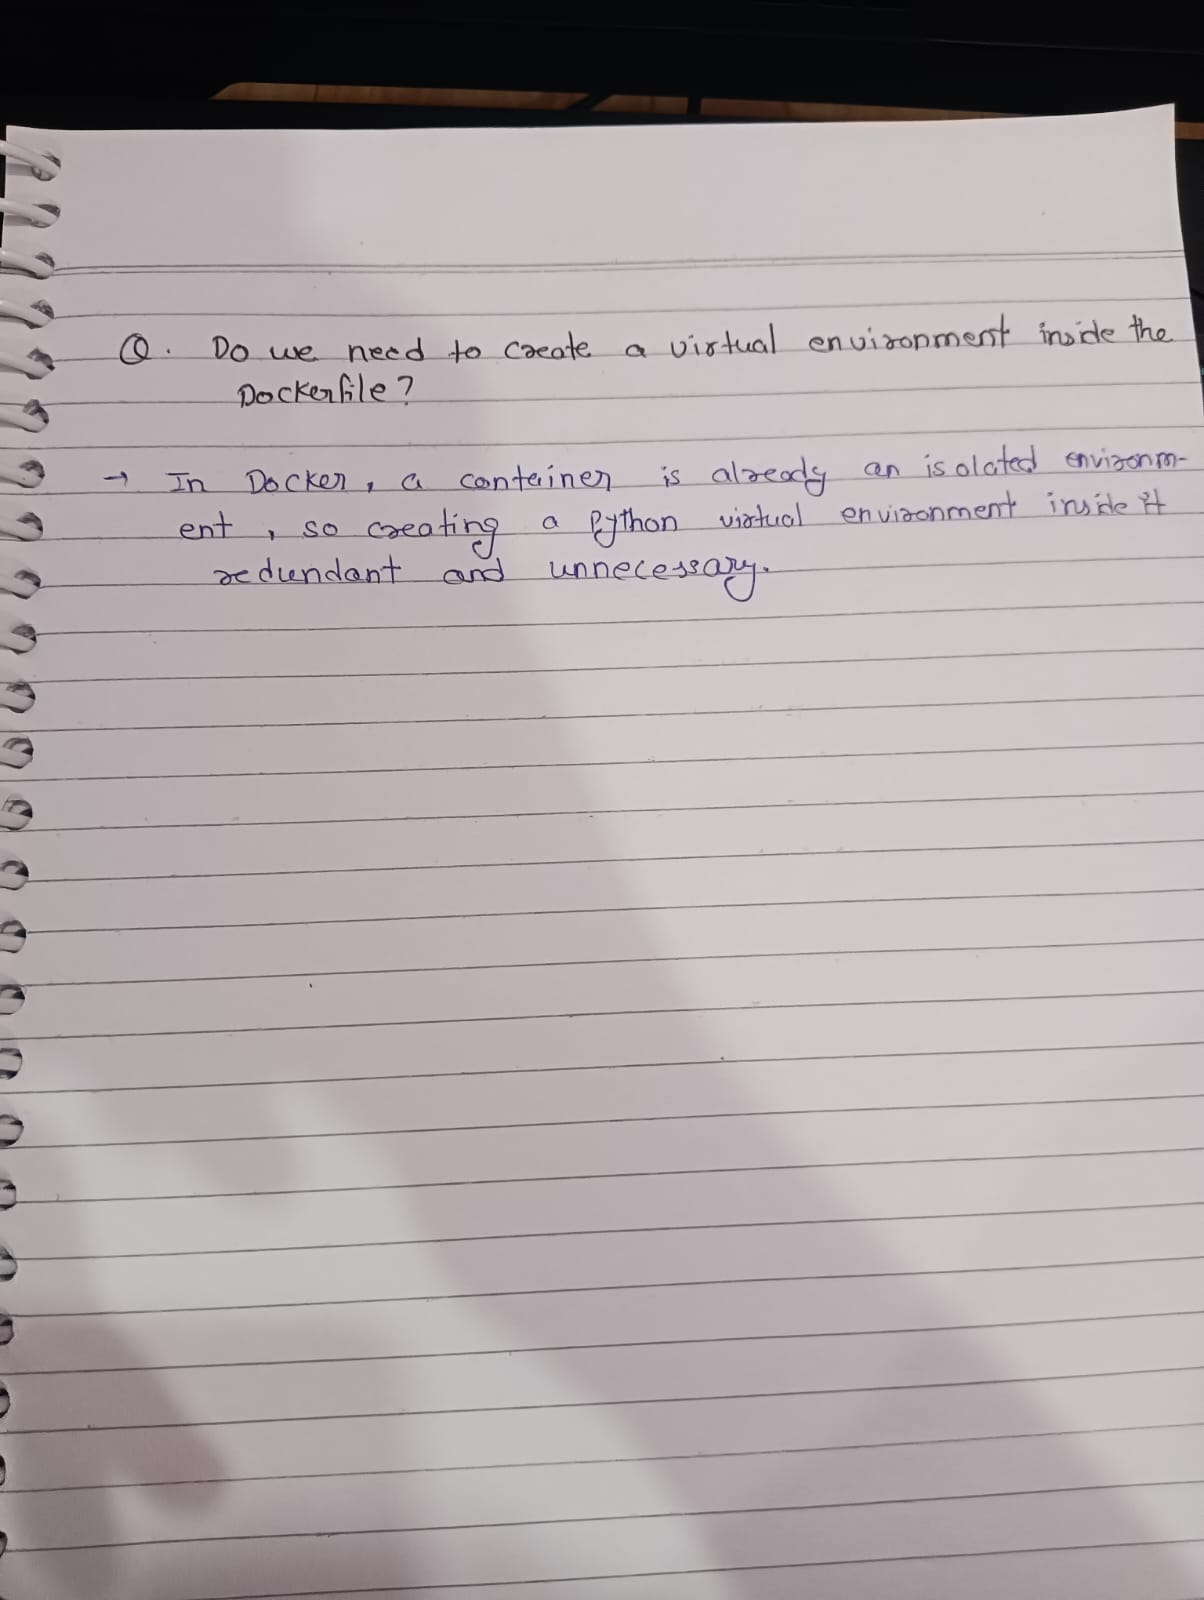 Q. Do we need to create a virtual environment inside the
Dockerfile?
→ In Docker, a container is already an isolated environm-
ent, so creating a Python virtual environment inside it
redundant and unnecessary.